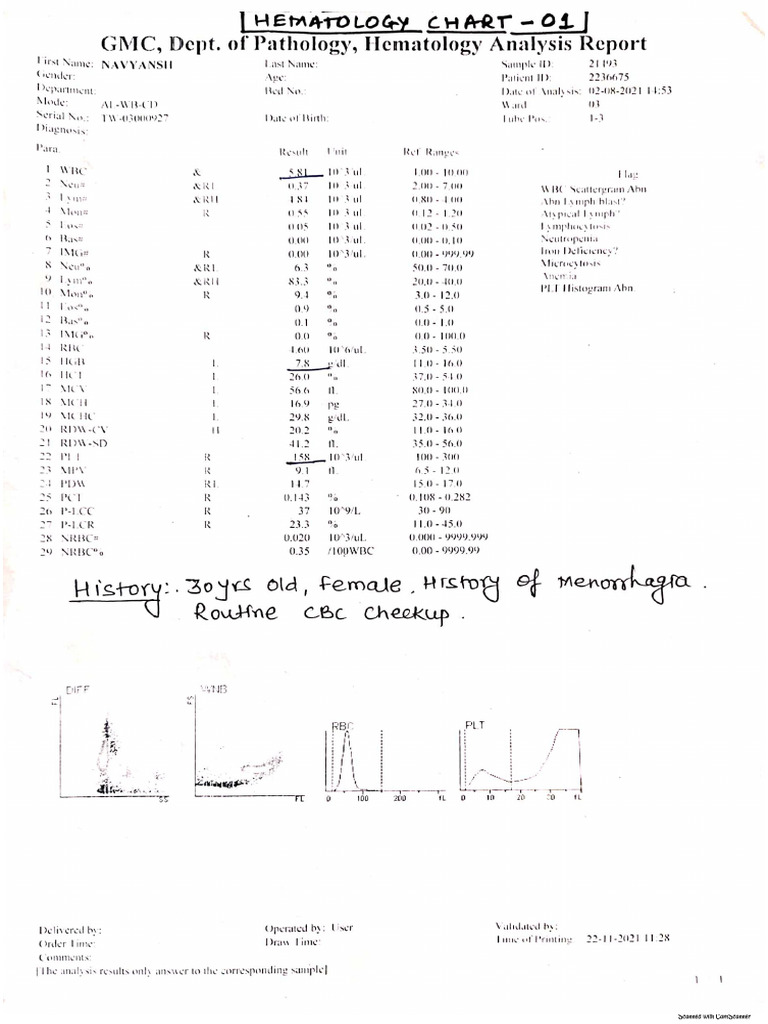 HEMATOLOGY CHART - 01
GMC, Dept. of Pathology, Hematology Analysis Report
First Name: NAVYANSH Last Name: Sample ID: 21493
Gender: Age: Patient ID: 2236675
Department: Bed No.: Date of Analysis: 02-08-2021 14:53
Mode: AL-WB-CD Ward 03
Serial No.: TW-03000927 Date of Birth: Tube Pos.: 1-3
Diagnosis:
Para. Result Unit Ref. Ranges
1 WBC & 5.81 10^3/uL 4.00 - 10.00 Flag
2 Neu# &RL 0.37 10^3/uL 2.00 - 7.00 WBC Scattergram Abn
3 Lym# &RH 4.84 10^3/uL 0.80 - 4.00 Abn Lymph/blast?
4 Mon# R 0.55 10^3/uL 0.12 - 1.20 Atypical Lymph?
5 Eos# 0.05 10^3/uL 0.02 - 0.50 Lymphocytosis
6 Bas# 0.00 10^3/uL 0.00 - 0.10 Neutropenia
7 IMG# R 0.00 10^3/uL 0.00 - 999.99 Iron Deficiency?
8 Neu% &RL 6.3 % 50.0 - 70.0 Microcytosis
9 Lym% &RH 83.3 % 20.0 - 40.0 Anemia
10 Mon% R 9.4 % 3.0 - 12.0 PLT Histogram Abn
11 Eos% 0.9 % 0.5 - 5.0
12 Bas% 0.1 % 0.0 - 1.0
13 IMG% R 0.0 % 0.0 - 100.0
14 RBC 4.60 10^6/uL 3.50 - 5.50
15 HGB L 7.8 g/dL 11.0 - 16.0
16 HCT L 26.0 % 37.0 - 54.0
17 MCV L 56.6 fL 80.0 - 100.0
18 MCH L 16.9 pg 27.0 - 34.0
19 MCHC L 29.8 g/dL 32.0 - 36.0
20 RDW-CV H 20.2 % 11.0 - 16.0
21 RDW-SD 41.2 fL 35.0 - 56.0
22 PLT R 158 10^3/uL 100 - 300
23 MPV R 9.1 fL 6.5 - 12.0
24 PDW RL 14.7 15.0 - 17.0
25 PCT R 0.143 % 0.108 - 0.282
26 P-LCC R 37 10^9/L 30 - 90
27 P-LCR R 23.3 % 11.0 - 45.0
28 NRBC# 0.020 10^3/uL 0.000 - 9999.999
29 NRBC% 0.35 /100WBC 0.00 - 9999.99
History:. 30yrs old, Female, History of Menorrhagia.
Routine CBC Checkup.
DIFF WNB RBC PLT
FL SS FS FL 0 100 200 fL 0 10 20 30 fL
Delivered by: Operated by: User Validated by:
Order Time: Draw Time: Time of Printing: 22-11-2021 11:28
Comments:
[The analysis results only answer to the corresponding sample]
1 1
Scanned with CamScanner